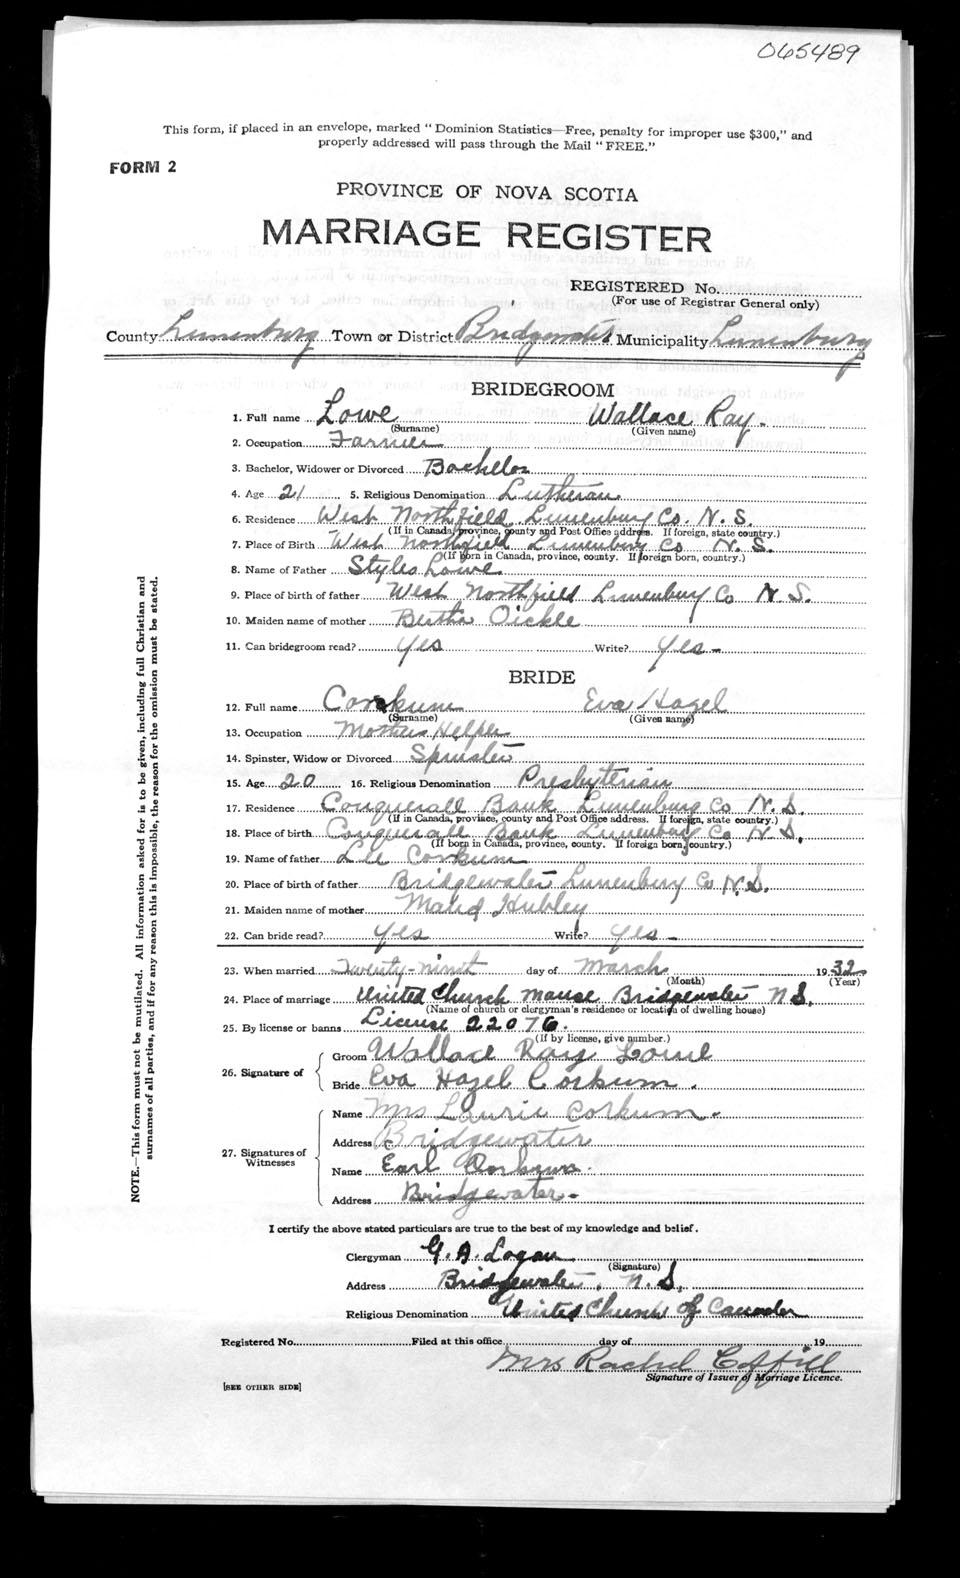 065489
This form, if placed in an envelope, marked "Dominion Statistics—Free, penalty for improper use $300," and
properly addressed will pass through the Mail "FREE."
FORM 2
PROVINCE OF NOVA SCOTIA
MARRIAGE REGISTER
REGISTERED No.
(For use of Registrar General only)
County Lunenburg Town or District Bridgewater Municipality Lunenburg
BRIDEGROOM
1. Full name Lowe Wallace Ray.
(Surname) (Given name)
2. Occupation Farmer
3. Bachelor, Widower or Divorced Bachelor
4. Age 21 5. Religious Denomination Lutheran
6. Residence West Northfield Lunenburg Co. N. S.
(If in Canada, province, county and Post Office address. If foreign, state country.)
7. Place of Birth West Northfield Lunenburg Co N. S.
(If born in Canada, province, county. If foreign born, country.)
8. Name of Father Styles Lowe
9. Place of birth of father West Northfield Lunenburg Co N. S.
10. Maiden name of mother Bertha Oickle
11. Can bridegroom read? Yes Write? Yes -
BRIDE
12. Full name Corkum Eva Hazel
(Surname) (Given name)
13. Occupation Mothers Helper
14. Spinster, Widow or Divorced Spinster
15. Age 20 16. Religious Denomination Presbyterian
17. Residence Conquerall Bank Lunenburg Co N. S.
(If in Canada, province, county and Post Office address. If foreign, state country.)
18. Place of birth Conquerall Bank Lunenburg Co N. S.
(If born in Canada, province, county. If foreign born, country.)
19. Name of father Lee Corkum
20. Place of birth of father Bridgewater Lunenburg Co N. S.
21. Maiden name of mother Maud Hubley
22. Can bride read? Yes Write? Yes -
23. When married Twenty-ninth day of March 1932
(Month) (Year)
24. Place of marriage United Church Manse Bridgewater N S.
(Name of church or clergyman's residence or location of dwelling house)
25. By license or banns License 22076.
(If by license, give number.)
26. Signature of Groom Wallace Ray Lowe
Bride Eva Hazel Corkum.
27. Signatures of Witnesses Name Mrs Laurie Corkum.
Address Bridgewater
Name Earl Corkum.
Address Bridgewater-
I certify the above stated particulars are true to the best of my knowledge and belief.
Clergyman G. A. Logan
(Signature)
Address Bridgewater, N. S.
Religious Denomination United Church of Canada
Registered No. Filed at this office day of 19
Mrs Rachel Coffill
Signature of Issuer of Marriage Licence.
[SEE OTHER SIDE]
NOTE.—This form must not be mutilated. All information asked for is to be given, including full Christian and
surnames of all parties, and if for any reason this is impossible, the reason for the omission must be stated.